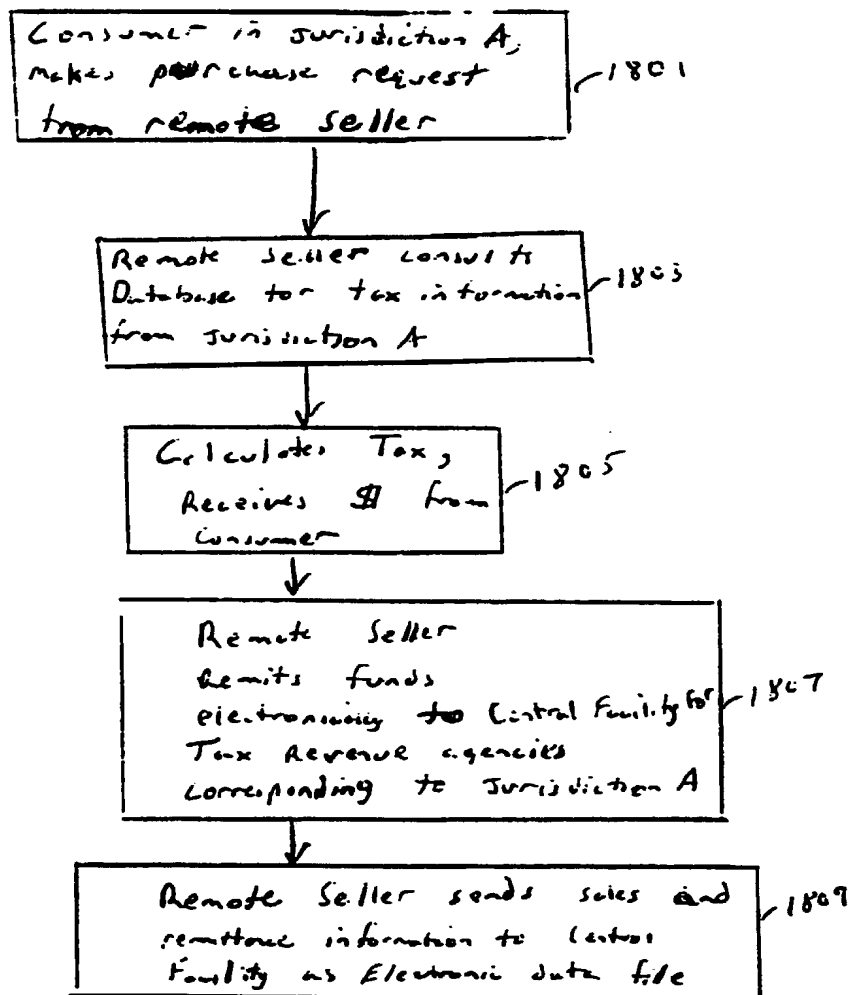 Consumer in Jurisdiction A,
makes purchase request
from remote seller
1801
Remote seller consults
Database for tax information
from Jurisdiction A
1803
Calculates Tax,
Receives $ from
Consumer
1805
Remote Seller
Remits funds
electronically to Central Facility for
Tax Revenue agencies
corresponding to Jurisdiction A
1807
Remote Seller sends sales and
remittance information to Central
Facility as Electronic data file
1809